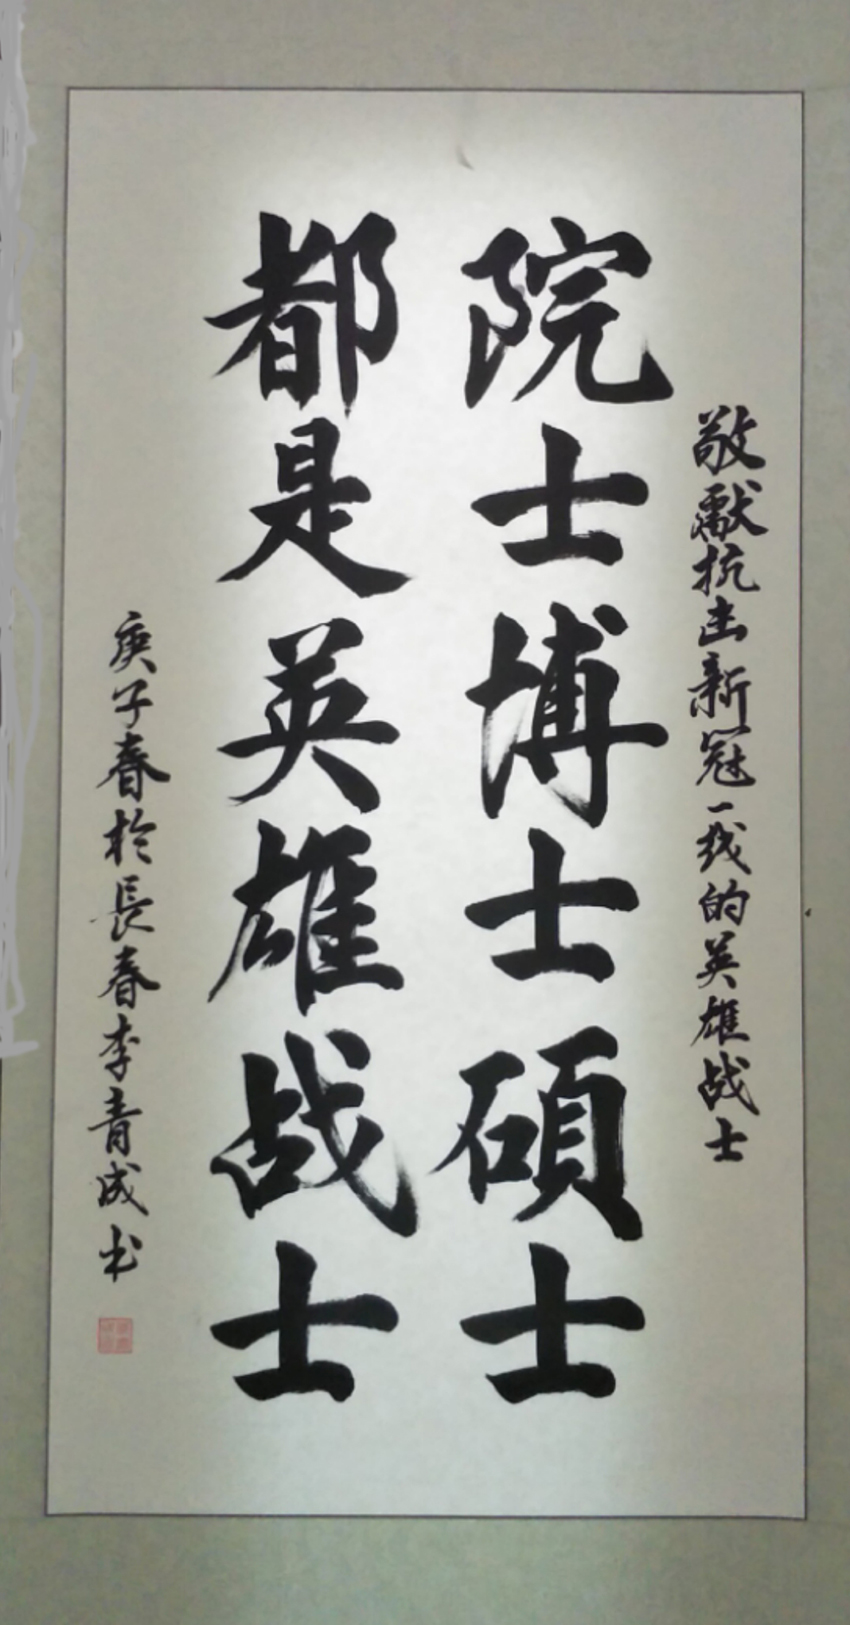 敬獻抗击新冠一线的英雄战士
院士博士碩士
都是英雄战士
庚子春於長春李青成书